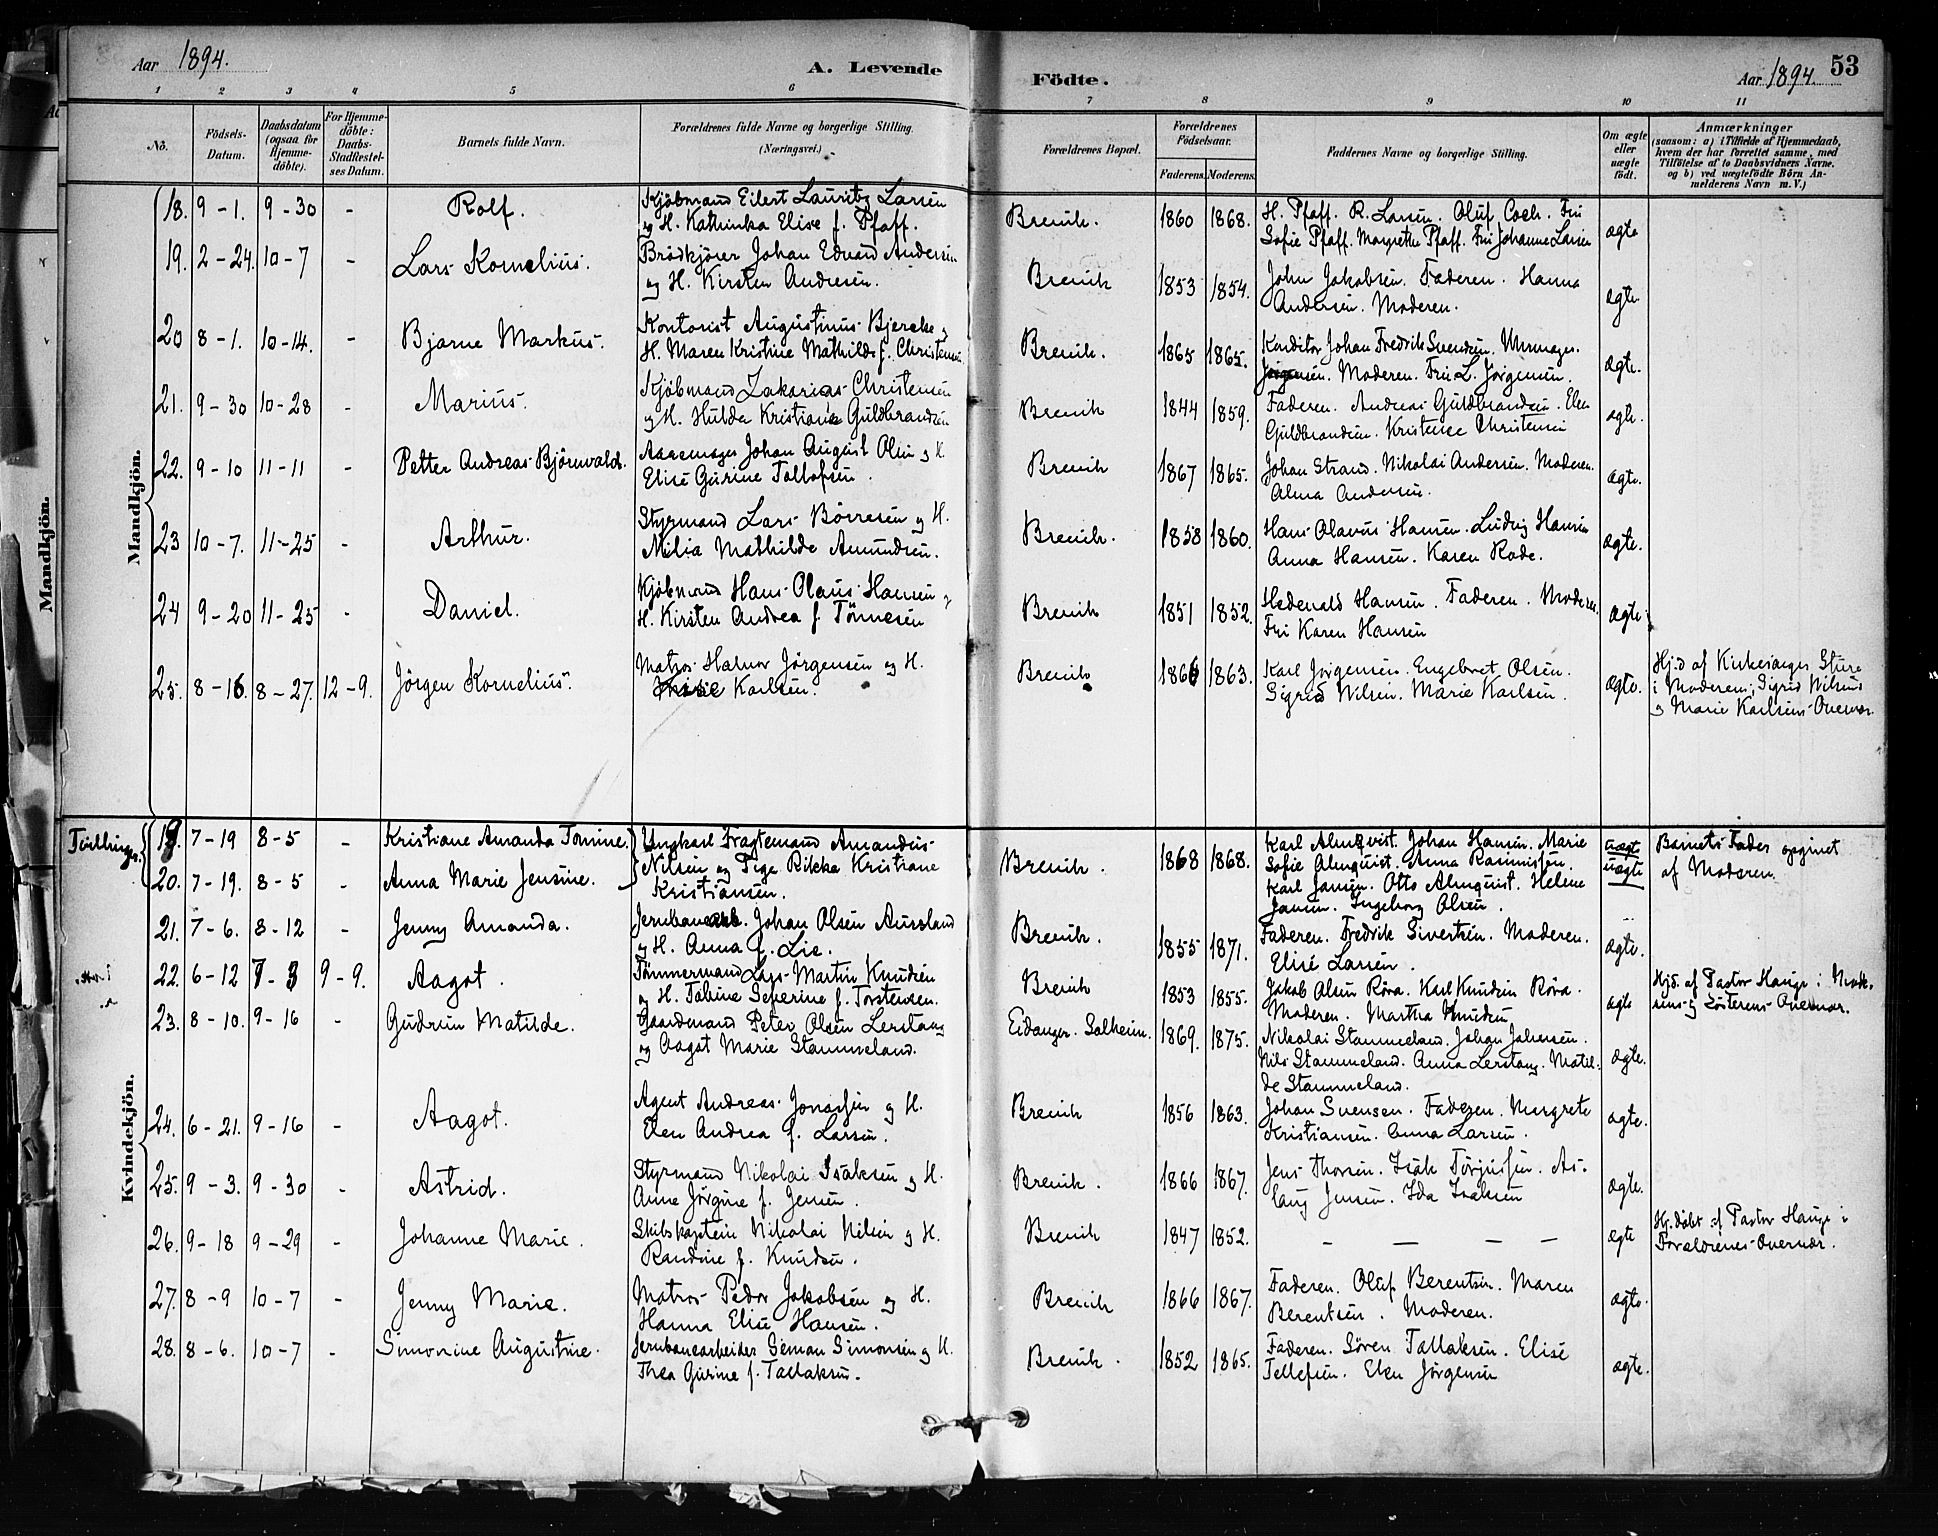 Aar 1894.
A. Levende
Födte.
Aar 1894.
53
1 2 3 4 5 6 7 8 9 10 11
No.
Födsels-
Datum.
Daabsdatum
(ogsaa for
Hjemme-
döbte).
For Hjemme-
döbte:
Daabs-
Stadfestel-
ses Datum.
Barnets fulde Navn.
Forældrenes fulde Navne og borgerlige Stilling.
(Næringsvei.)
Forældrenes Bopæl.
Forældrenes
Födselsaar.
Faderens. Moderens.
Faddernes Navne og borgerlige Stilling.
Om ægte
eller
uægte
födt.
Anmærkninger
(saasom: a) i Tilfælde af Hjemmedaab,
hvem der har forrettet samme, med
Tilföielse af to Daabsvidners Navne.
og b) ved uægtefödte Börn An-
melderens Navn m. V.)
Mandkjön.
Mandkjön.
18. 9-1. 9-30 - Rolf.
Kjöbmand Eilert Lauritz Larsen
og H. Kathinka Elise f. Pfaff.
Brevik. 1860 1868.
H. Pfaff. R. Larsen. Oluf Coch. Fru
Sofie Pfaff. Margrethe Pfaff. Fru Johanne Larsen
ægte
19. 2-24. 10-7 - Lars Kornelius.
Brödkjörer Johan Edvard Andersen
og H. Kirsten Andresen.
Brevik 1853 1854.
John Jakobsen. Faderen. Hanna
Andersen. Moderen.
ægte.
20 8-1. 10-14. - Bjarne Markus.
Kontorist Augustinus Bjercke og
H. Maren Kristine Mathilde f. Christensen.
Brevik. 1865 1865.
Konditor Johan Fredrik Svendsen. Urmager
Jörgensen. Moderen. Fru L. Jörgensen.
ægte.
21. 9-30 10-28 - Marius.
Kjöbmand Zakarias Christensen
og H. Hulda Kristiane Guldbrandsen
Brevik 1844 1859.
Faderen. Andreas Guldbrandsen. Elen
Guldbrandsen. Kristence Christensen
ægte.
22. 9-10 11-11 - Petter Andreas Björnvald.
Johan August Olsen og H.
Elise Gurine Tollofsen.
Brevik 1867 1865.
Johan Strand. Nikolai Andersen. Moderen.
Alma Andersen.
ægte.
23 10-7. 11-25 - Arthur.
Styrmand Lars Börresen og H.
Milia Mathilde Amundsen.
Brevik. 1858 1860.
Hans Olavus Hansen. Ludvig Hansen
Anna Hansen. Karen Rode.
ægte.
24 9-20 11-25 - Daniel.
Kjöbmand Hans Olaus Hansen og
H. Kirsten Andrea f. Tönnesen
Brevik 1851 1852.
Hedevald Hansen. Faderen. Moderen.
Fru Karen Hansen
ægte
25. 8-16. 8-27. 12-9. Jörgen Kornelius.
Matros Halvor Jörgensen og H.
Karlsen.
Brevik 1866 1863.
Karl Jörgensen. Engebret Olsen.
Sigrid Nilsen. Marie Karlsen.
ægte.
Hj.d af Kirkesanger Sture
i Moderens, Sigrid Nilsens
og Marie Karlsens Overvær.
Kvindekjön.
Tvillinger.
19. 7-19 8-5 - Kristiane Amanda Tomine.
20. 7-19. 8-5 - Anna Marie Jensine.
Ungkarl Fragtemand Amandus
Nilsen og Pige Rikka Kristiane
Kristiansen.
Brevik. 1868 1868.
Karl Almqvist. Johan Hansen. Marie
Sofie Almquist. Anna Rasmussen
Karl Jansen. Otto Almquist. Helene
Jansen. Ingeborg Olsen.
uægt
uægte
Barnets Fader opgivet
af Moderen.
21. 7-6. 8-12 - Jenny Amanda.
Jernbanearb. Johan Olsen Aursland
og H. Anna f. Lie.
Brevik. 1855 1871.
Faderen. Fredrik Sivertsen. Moderen.
Elise Larsen.
ægte.
22. 6-12 7-3 9-9. Aagot.
Tömmermand Lars Martin Knudsen
og H. Tabine Severine f. Torstensen.
Brevik 1853 1855.
Jakob Olsen Röra. Karl Knudsen Röra.
Moderen. Martha Knudsen
ægte
Hjd. af Pastor Hauge i Mode-
rens og Sösterens Overvær.
23. 8-10. 9-16 - Gudrun Matilde.
Gaardmand Peter Olsen Lerstang
og Aagot Marie Stammeland.
Eidanger. Solheim. 1869. 1875.
Nikolai Stammeland. Johan Johansen.
Nils Stammeland. Anna Lerstang. Matil-
de Stammeland.
ægte.
24. 6-21. 9-16 - Aagot.
Agent Andreas Jonassen og H.
Elen Andrea f. Larsen.
Brevik 1856 1863.
Johan Svensen. Faderen. Margrete
Kristiansen. Anna Larsen.
ægte.
25. 9-3. 9-30 - Astrid.
Styrmand Nikolai Isaksen og H.
Anne Jörgine f. Jensen.
Brevik. 1866 1867.
Jens Thorsen. Isak Torjussen. As-
laug Jensen. Ida Isaksen
ægte.
26. 9-18 9-29 - Johanne Marie.
Skibskaptein Nikolai Nilsen og H.
Randine f. Knudsen.
Brevik 1847 1852.
— — — —
ægte
Hj. döbt af Pastor Hauge i
Forældrenes Overvær.
27. 8-9 10-7 - Jenny Marie.
Matros Peder Jakobsen og H.
Hanna Elise Hansen.
Brevik 1866 1867.
Faderen. Oluf Berentsen. Maren
Berentsen. Moderen.
ægte.
28. 8-6. 10-7 - Simonine Augustine.
Jernbanearbeider Seman Simonsen og H.
Thea Gurine f. Tallaksen.
Brevik. 1852 1865.
Faderen. Sören Tallaksen. Elise
Tellefsen. Elen Jörgensen
ægte.